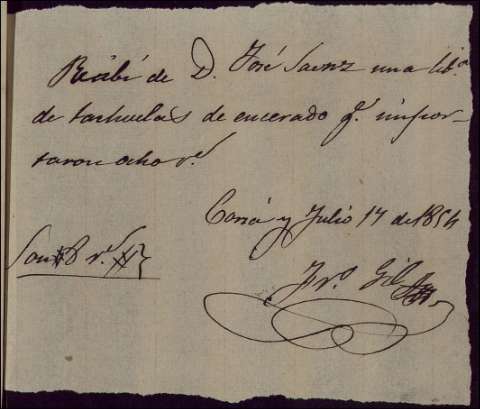 Recibi de D. José Saenz una lib.ª
de tachuelas de encerado q.e impor-
taron ocho r.s
Coria y Julio 17 de 1854
Son 8 r.s
Fr.o Gil